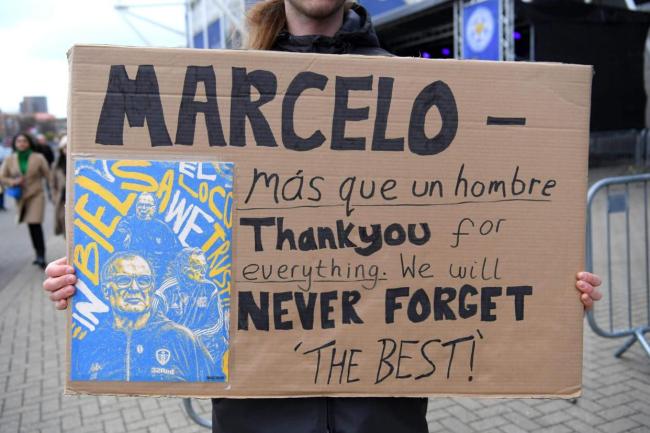 MARCELO –
Más que un hombre
Thankyou for
everything. We will
NEVER FORGET
'THE BEST!'
EL
LOCO
IN BIELSA
WE
TRUST
32Red